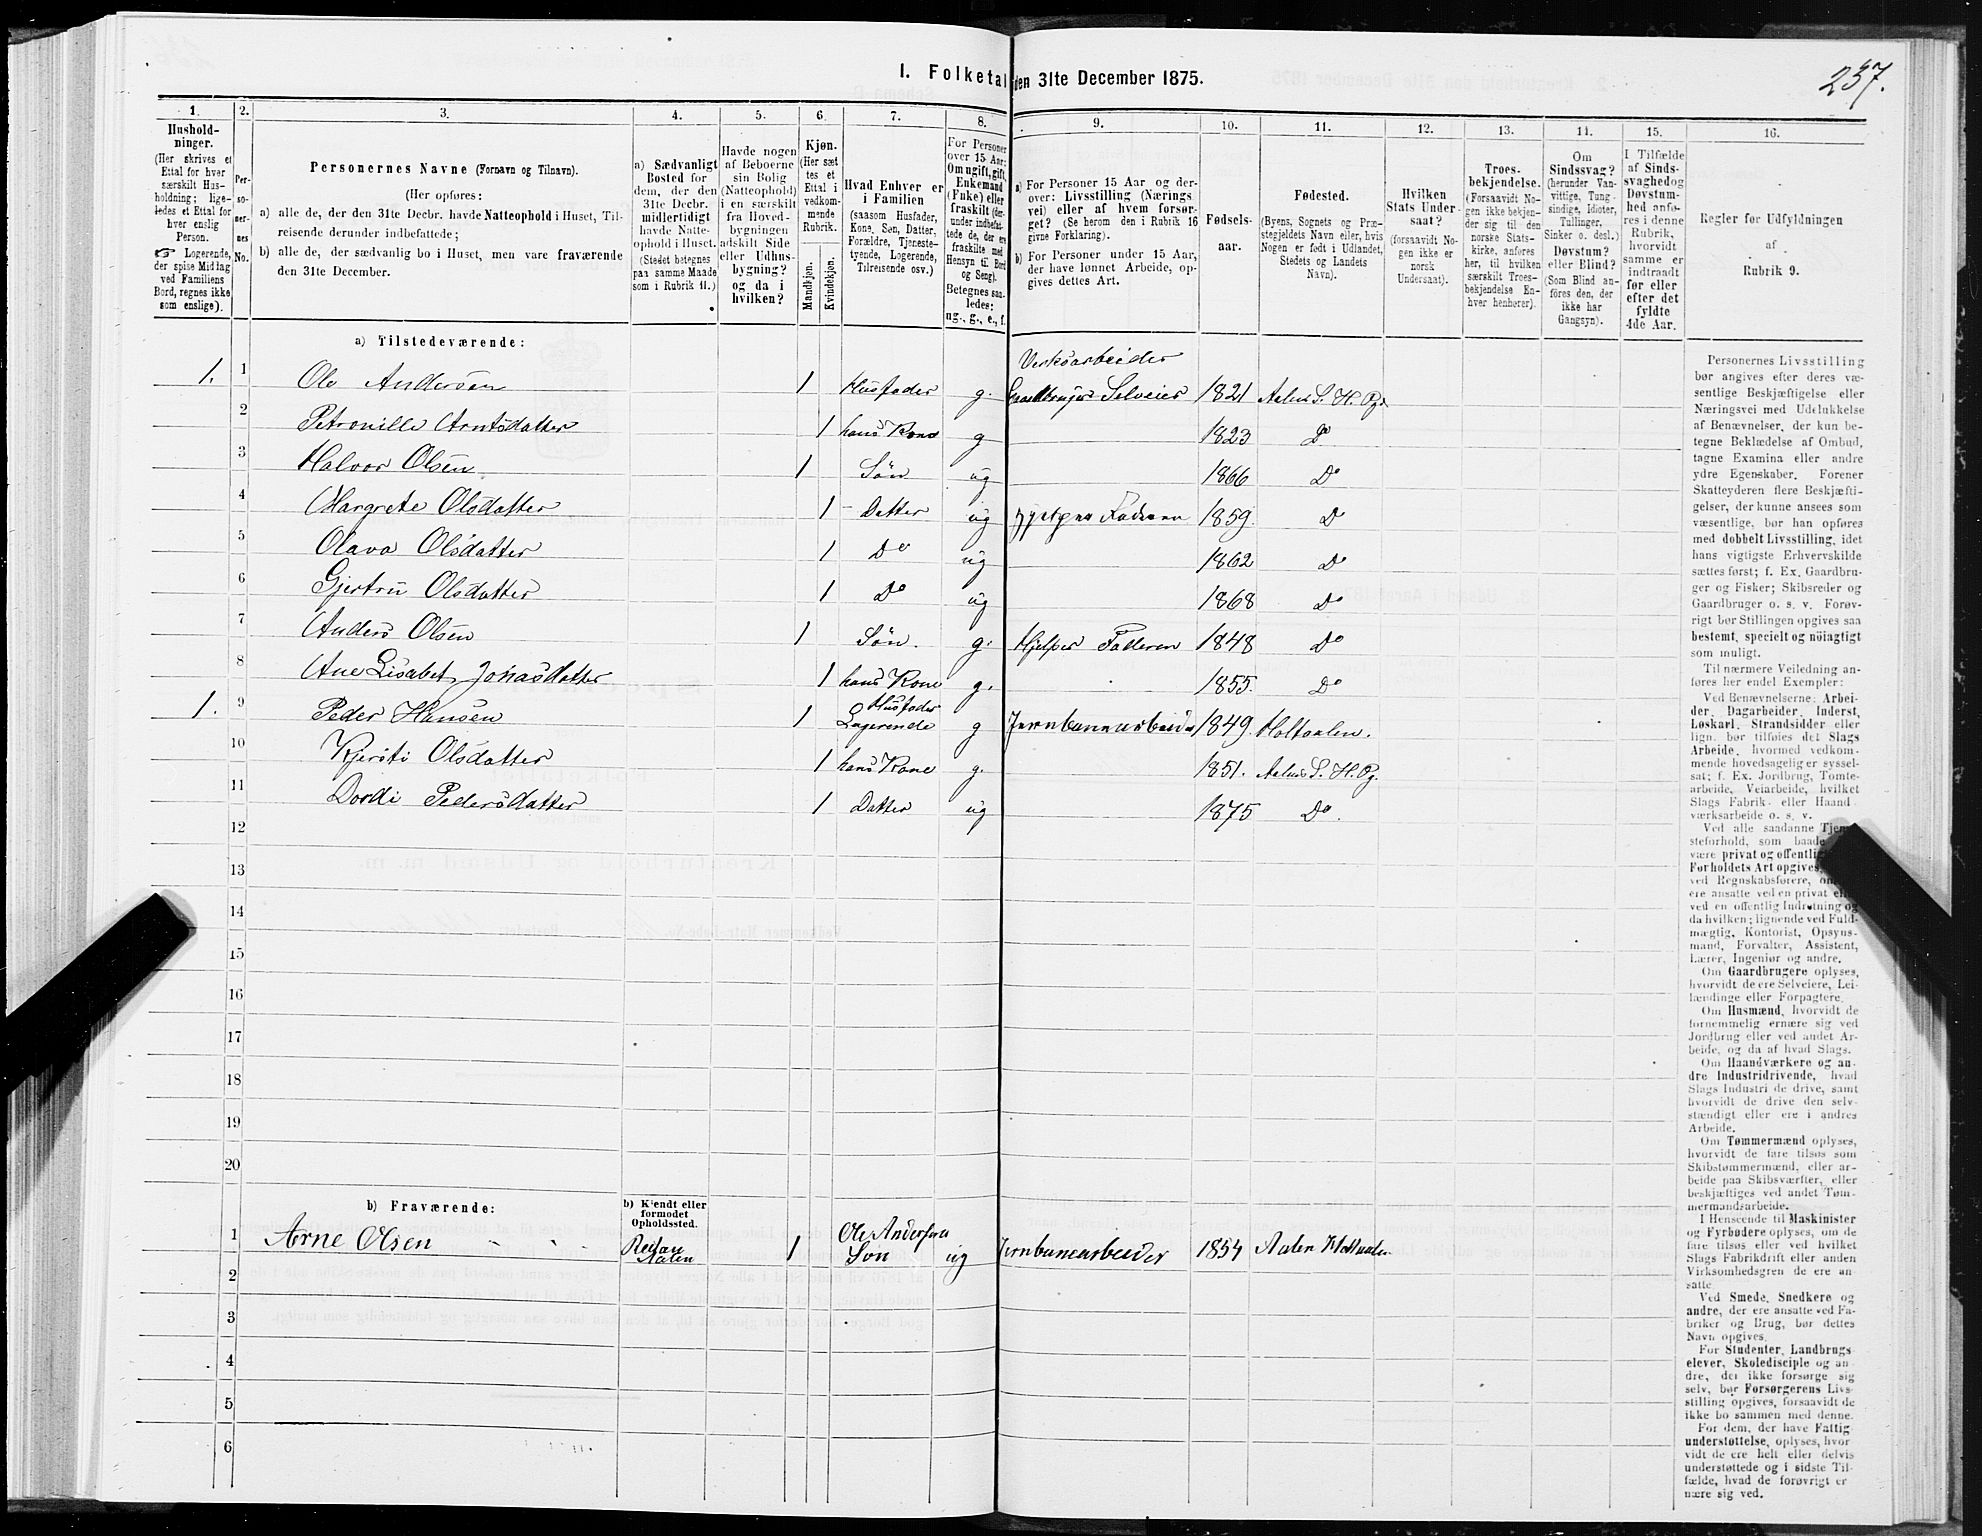 237.
I. Folketal den 31te December 1875.
1. 2. 3. 4. 5. 6. 7. 8. 9. 10. 11. 12. 13. 14. 15. 16.
Hushold-
ninger.
(Her skrives et
Ettal for hver
særskilt Hus-
holdning; lige-
ledes et Ettal for
hver enslig
Person.
☞ Logerende,
der spise Middag
ved Familiens
Bord, regnes ikke
som enslige).
Per-
so-
ner-
nes
No.
Personernes Navne (Fornavn og Tilnavn).
(Her opføres:
a) alle de, der den 31te Decbr. havde Natteophold i Huset, Til-
reisende derunder indbefattede;
b) alle de, der sædvanlig bo i Huset, men vare fraværende
den 31te December.
a) Sædvanligt
Bosted for
dem, der den
31te Decbr.
midlertidigt
havde Natte-
ophold i Huset.
(Stedet betegnes
paa samme Maade
som i Rubrik 11.)
Havde nogen
af Beboerne
sin Bolig
(Natteophold)
i en særskilt
fra Hoved-
bygningen
adskilt Side
eller Udhus-
bygning?
og da i
hvilken?
Kjøn.
(Her sæt-
tes et
Ettal i
vedkom-
mende
Rubrik.
Mandkjøn.
Kvindekjøn.
Hvad Enhver er
i Familien
(saasom Husfader,
Kone, Søn, Datter,
Forældre, Tjeneste-
tyende, Logerende,
Tilreisende osv.)
For Personer
over 15 Aar:
Om ugift, gift,
Enkemand
(Enke) eller
fraskilt (der-
under indbefat-
tede de, der ere
fraskilte med
Hensyn til Bord
og Seng).
Betegnes saa-
ledes:
ug., g., e., f.
a) For Personer 15 Aar og der-
over: Livsstilling (Nærings
vei) eller af hvem forsør-
get? (Se herom den i Rubrik 16
givne Forklaring).
b) For Personer under 15 Aar,
der have lønnet Arbeide, op-
gives dettes Art.
Fødsels-
aar.
Fødested.
(Byens, Sognets og Præ-
stegjeldets Navn eller, hvis
Nogen er født i Udlandet,
Stedets og Landets
Navn).
Hvilken
Stats Under-
saat?
(forsaavidt No-
gen ikke er
norsk
Undersaat).
Troes-
bekjendelse.
(Forsaavidt No-
gen ikke bekjen-
der sig til den
norske Stats-
kirke, anføres
her, til hvilken
særskilt Troes-
bekjendelse En-
hver henhører).
Om
Sindssvag?
(herunder Van-
vittige, Tung-
sindige, Idioter,
Tullinger,
Sinker o. desl.)
Døvstum?
eller Blind?
(Som Blind an-
føres den, der
ikke har
Gangsyn).
I Tilfælde
af Sinds-
svaghed og
Døvstum-
hed anfø-
res i denne
Rubrik,
hvorvidt
samme er
indtraadt
før eller
efter det
fyldte
4de Aar.
Regler for Udfyldningen
af
Rubrik 9.
a) Tilstedeværende:
Verksarbeider
1. 1 Ole Andersen 1 Husfader g. Gaardbruger Selveier 1821 Aalens S. H. Pg.
2 Petronille Arntsdatter 1 hans Kone g 1823 Do
3 Halvor Olsen 1 Søn ug 1866 Do
4 Margrete Olsdatter 1 Datter ug Hjelper Faderen 1859. Do
5 Olava Olsdatter 1 Do ug 1862 Do
6 Gjertru Olsdatter 1 Do ug 1868 Do
7 Anders Olsen 1 Søn. g. Hjelper Faderen 1848 Do
8 Ane Lisabet Jonasdatter 1 hans Kone g. 1855. Do
Husfader
1. 9 Peder Hansen 1 Logerende g Jernbanearbeider 1849. Holtaalen.
10 Kjersti Olsdatter 1 hans Kone g. 1851. Aalens S. H. Pg.
11 Dordi Pedersdatter 1 Datter ug 1875 Do.
12
13
14
15
16
17
18
19
20
b) Fraværende:
b) Kjendt eller
formodet
Opholdssted.
Ole Andersens
1 Arne Olsen Aalen 1 Søn ug Jernbanearbeider 1854 Aalen Holtaalen
2
3
4
5
6
Personernes Livsstilling
bør angives efter deres væ-
sentlige Beskjæftigelse eller
Næringsvei med Udelukkelse
af Benævnelser, der kun be-
tegne Beklædelse af Ombud,
tagne Examina eller andre
ydre Egenskaber. Forener
Skatteyderen flere Beskjæfti-
gelser, der kunne ansees som
væsentlige, bør han opføres
med dobbelt Livsstilling, idet
hans vigtigste Erhvervskilde
sættes først; f. Ex. Gaardbru-
ger og Fisker; Skibsreder og
Gaardbruger o. s. v. Forøv-
rigt bør Stillingen opgives saa
bestemt, specielt og nöiagtigt
som muligt.
Til nærmere Veiledning an-
føres her endel Exempler:
Ved Benævnelserne: Arbei-
der, Dagarbeider, Inderst,
Løskarl, Strandsidder eller
lign. bør tilføies det Slags
Arbeide, hvormed vedkom-
mende hovedsagelig er syssel-
sat; f. Ex. Jordbrug, Tomte-
arbeide, Veiarbeide, hvilket
Slags Fabrik- eller Haand-
værksarbeide o. s. v.
Ved alle saadanne Tjene-
steforhold, som baade
være privat og offentlig
Forholdets Art opgives,
ved Regnskabsførere, om
ere ansatte ved en privat eller
ved en offentlig Indretning og
da hvilken; lignende ved Fuld-
mægtig, Kontorist, Opsyns-
mand, Forvalter, Assistent,
Lærer, Ingeniør og andre.
Om Gaardbrugere oplyses,
hvorvidt de ere Selveiere, Lei-
lændinge eller Forpagtere.
Om Husmænd, hvorvidt de
fornemmelig ernære sig ved
Jordbrug eller ved andet Ar-
beide, og da af hvad Slags.
Om Haandværkere og an-
dre Industridrivende, hvad
Slags Industri de drive, samt
hvorvidt de drive den selv-
stændigt eller ere i andres
Arbeide.
Om Tømmermænd oplyses,
hvorvidt de fare tilsøs som
Skibstømmermænd, eller ar-
beide paa Skibsværfter, eller
beskjæftiges ved andet Tøm-
mermandsarbeide.
I Henseende til Maskinister
og Fyrbødere oplyses, om de
fare tilsøs eller ved hvilket
Slags Fabrikdrift eller anden
Virksomhedsgren de ere an-
satte
Ved Smede, Snedkere og
andre, der ere ansatte ved Fa-
briker og Brug, bør dettes
Navn opgives.
For Studenter, Landbrugs-
elever, Skoledisciple og an-
dre, der ikke forsørge sig
selv, bør Forsørgerens Livs-
stilling opgives, forsaavidt de
ikke bo sammen med denne.
For dem, der have Fattig-
understøttelse, oplyses, hvor-
vidt de ere helt eller delvis
understøttede og i sidste Til-
fælde, hvad de forøvrigt er-
nære sig ved.